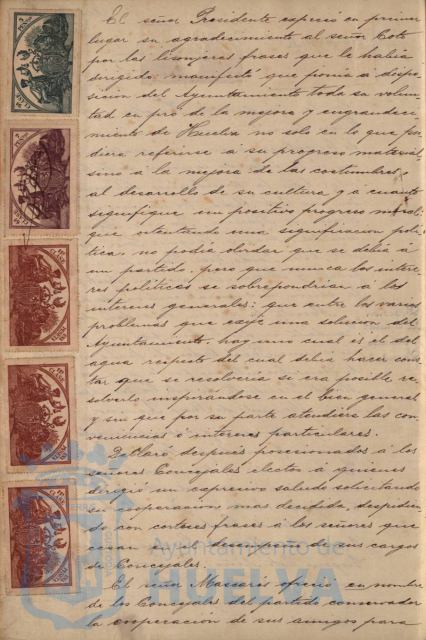 El señor Presidente expresó en primer
lugar su agradecimiento al señor Coto
por las lisonjeras frases que le había
dirigido, manifestó que ponía a dispo-
sición del Ayuntamiento toda su volun-
tad en pró de la mejora y engrandeci-
miento de Huelva no solo en lo que pu-
diera referirse á su progreso material
sinó á la mejora de las costumbres,
al desarrollo de su cultura y á cuanto
signifique un positivo progreso moral:
que ostentando una significacion polí-
tica, no podía olvidar que se debía á
un partido, pero que nunca los intere-
ses políticos se sobrepondrian á los
intereses generales: que entre los varios
problemas que exije una solucion del
Ayuntamiento hay uno cual es el del
agua respecto del cual debia hacer cons-
tar que se resolvería si era posible re-
solverlo inspirándose en el bien general
y sin que por su parte atendiera las con-
veniencias ó intereses particulares.
Declaró despues posesionados á los
señores Concejales electos á quienes
dirigió un expresivo saludo solicitando
su cooperacion mas decidida, despidien-
do con corteses frases á los señores que
cesan en el desempeño de sus cargos
de Concejales.
El señor Mascarós ofreció en nombre
de los Concejales del partido conservador
la cooperacion de sus amigos para
Ayuntamiento de
HUELVA